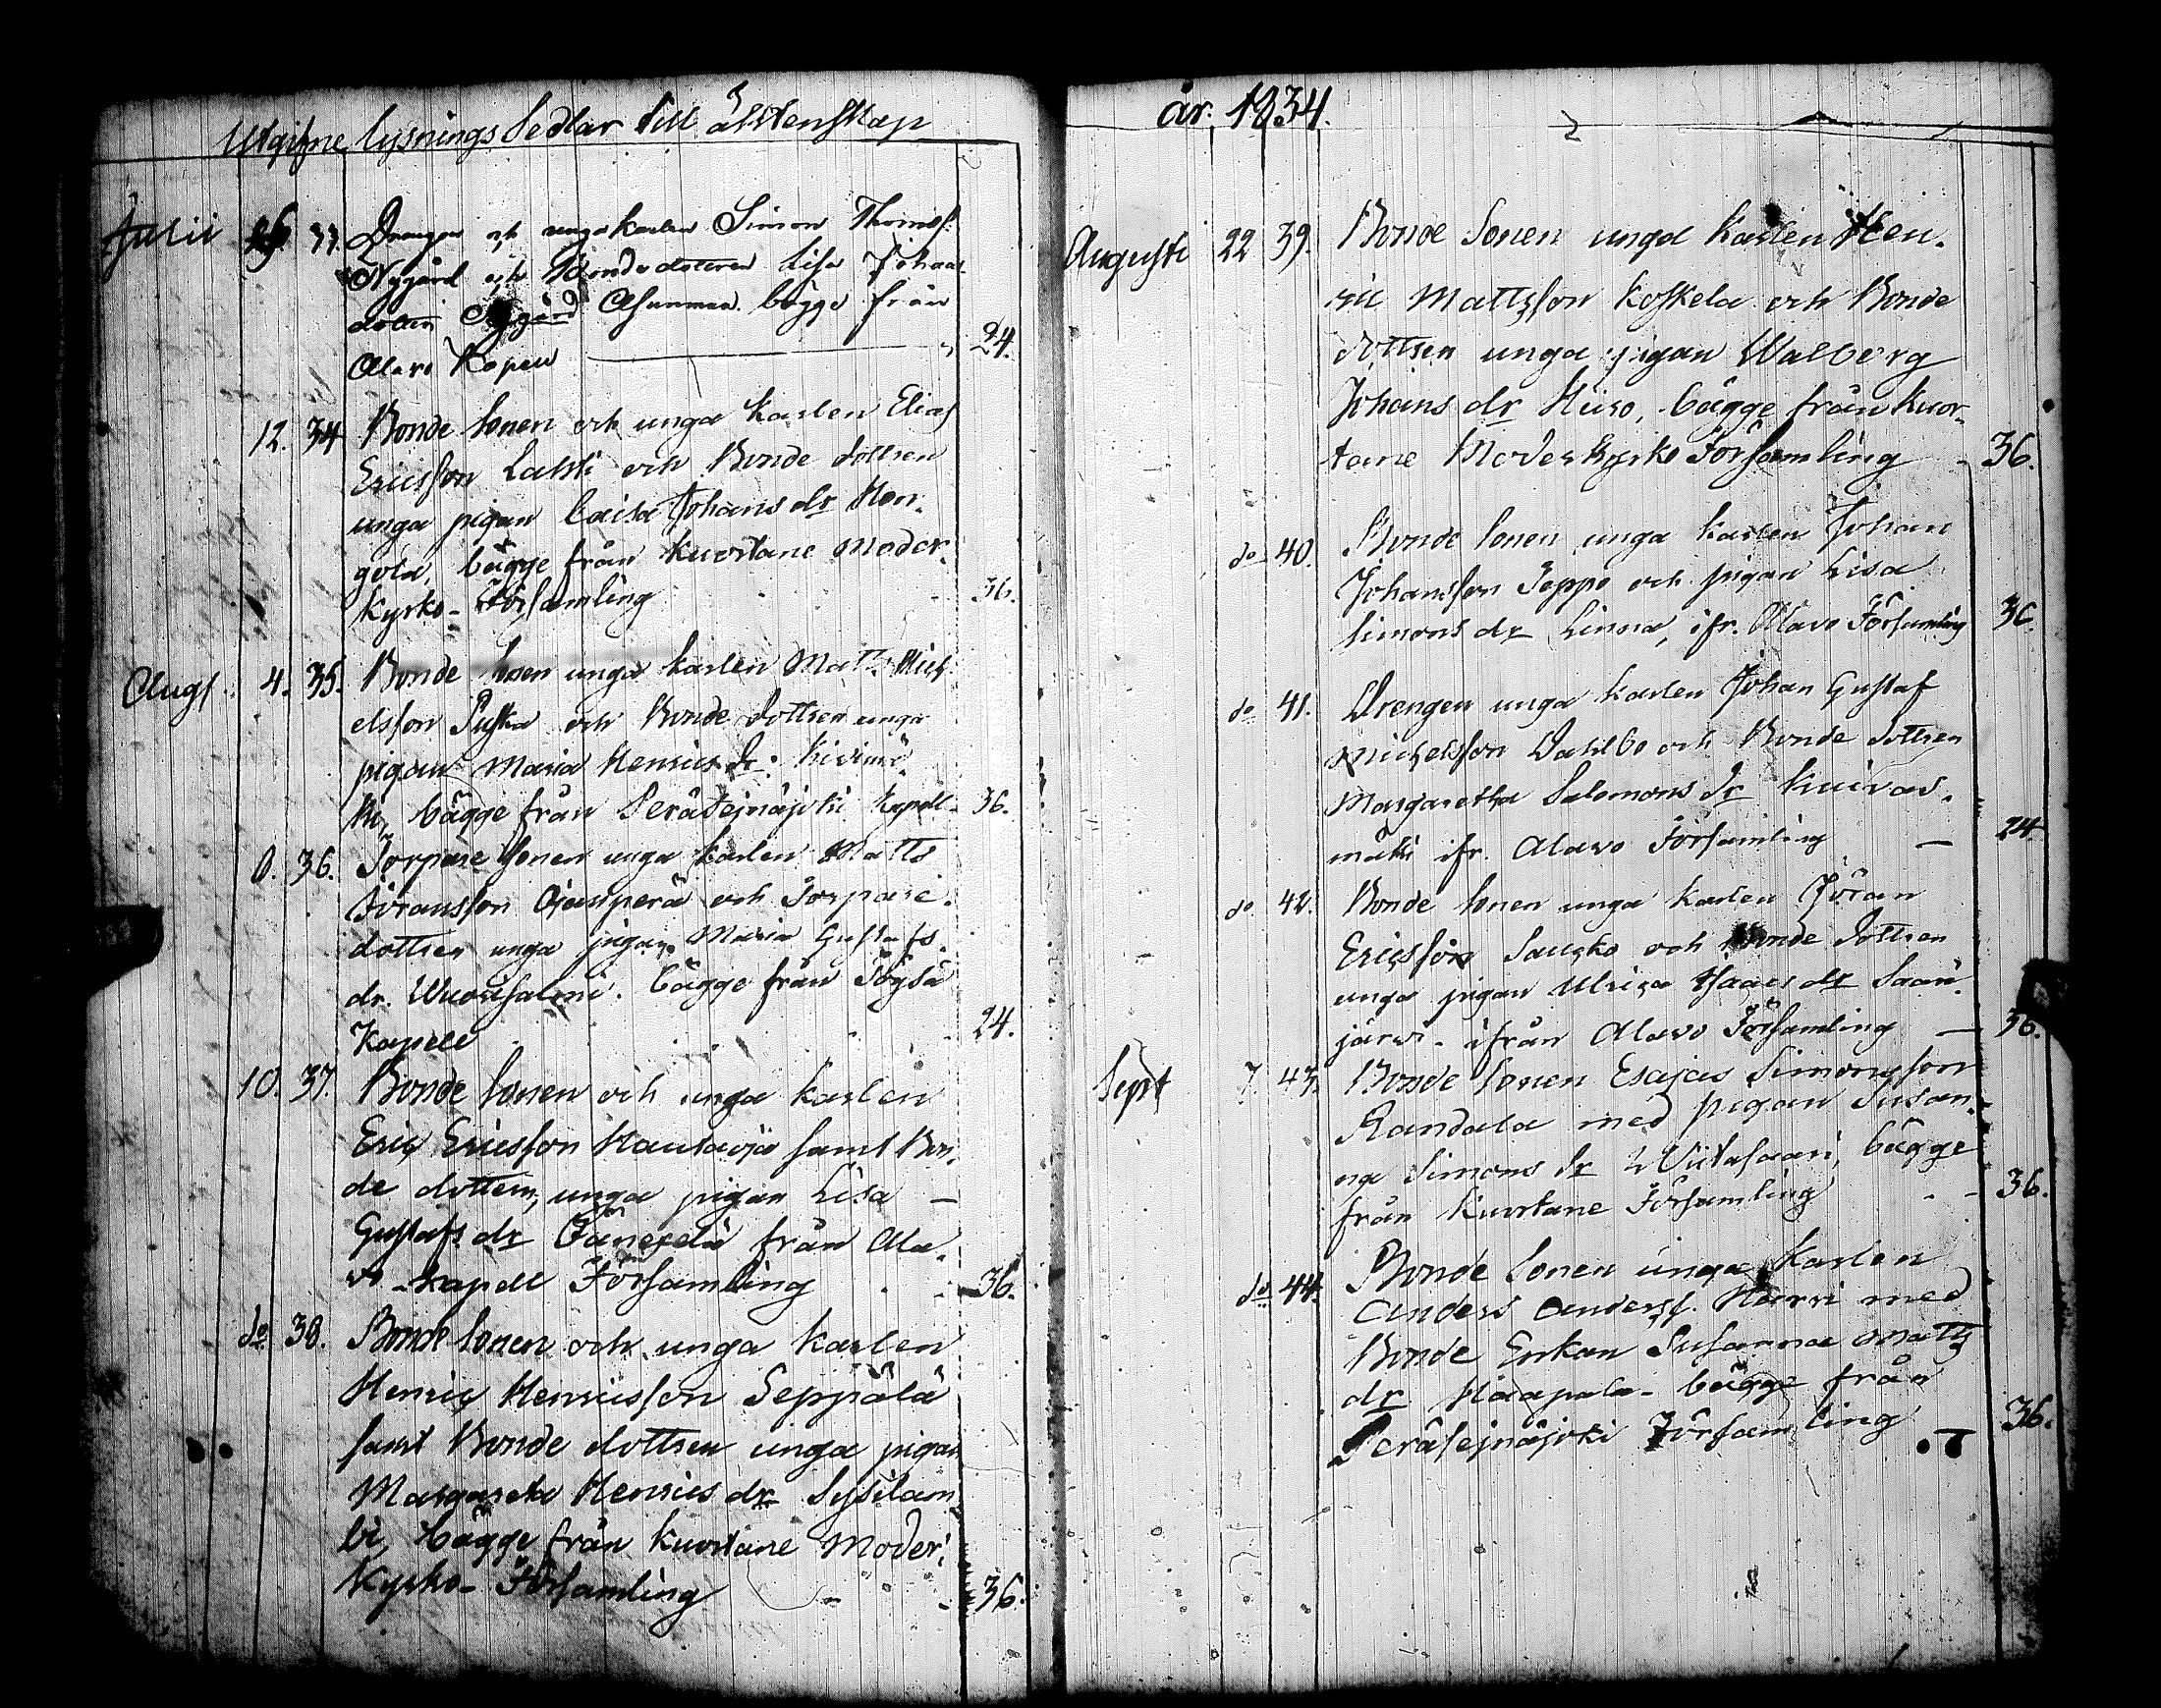 Utgifne lysnings Sedlar till äktenskap
Julii 33. Drängen och unga karlen Simon Thomass.
Nygård och Bondedotteren Lisa Johans
dotter Asunmaa bägge från
Alavo Kapell 24.
12. 34 Bonde sonen och unga karlen Elias
Ericsson Lahti och Bonde dottren
unga pigan Caisa Johans dr Hon-
gola, bägge från Kuortane Moder
kyrko-Församling 36.
Augs 4. 35. Bonde sonen unga karlen Matts Mich-
elsson Puska och Bonde dottren unga
pigan Maria Henrics dr Kivimä-
ki, bägge från Peräseinäjoki kapell 36.
8. 36. Torpare sonen unga karlen Matts
Jöransson Ojanperä och Torpare
dottren unga pigan Maria Gustafs
dr. bägge från Töysä
Kapell 24.
10. 37. Bonde sonen och unga karlen
Eric Ericsson Hautaoja samt Bon-
de dottern, unga pigan Lisa
Gustafs dr från Ala-
vo kapell Församling 36.
do 38. Bonde sonen och unga karlen
Henric Henricsson Seppälä
samt Bonde dottren unga pigan
Margareta Henrics dr Sysilam
bi, bägge från Kuortane Moder
kyrko-Församling 36.
år. 1834.
Augusti 22 39. Bonde Sonen unga karlen Hen-
ric Mattsson Koskela och Bonde
dottren unga pigan Walborg
Johans dr Hiiro, bägge från Kuor-
tane Moderkyrko Församling 36.
do 40. Bonde sonen unga karlen Johan
Johansson Seppo och pigan Lisa
Simons dr Linna, ifr. Alavo Församling 36.
do 41. Drengen unga karlen Johan Gustaf
Michelsson Dahlbo och Bonde dottren
Margaretha Salomons dr Kuivas-
mäki ifr. Alavo Församling 24
do 42. Bonde sonen unga karlen Jöran
Ericsson Sausko och Bonde dottren
unga pigan Ulrica Isaacs dr Saari-
järvi ifrån Alavo Församling 36.
Sept 7. 43. Bonde sonen Esajas Simonsson
Randala med pigan Susan-
na Simons dr Wiitasaari, bägge
från Kuortane Församling 36.
do 44. Bonde Sonen unga karlen
Anders Anderss. Harri med
Bonde Enkan Susanna Matts
dr Haapala bägge från
Peräseinäjoki Församling 36.